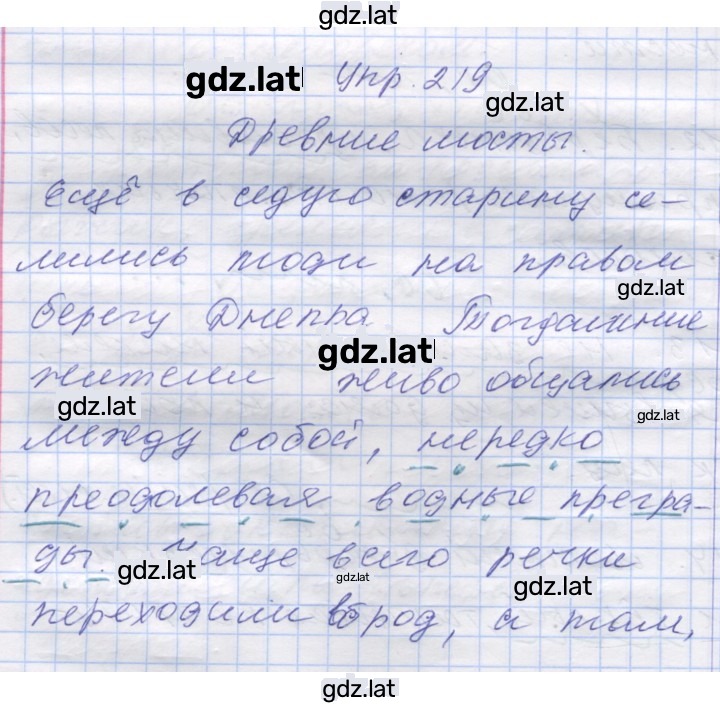 gdz.lat
gdz.lat Упр. 219
gdz.lat
Древние мосты.
Ещё в седую старину се-
лились люди на правом
gdz.lat
берегу Днепра. Тогдашние
gdz.lat
жители живо общались
gdz.lat gdz.lat
между собой, нередко
преодолевая водные прегра-
ды. Чаще всего речки
gdz.lat gdz.lat gdz.lat
переходили вброд, а там,
gdz.lat